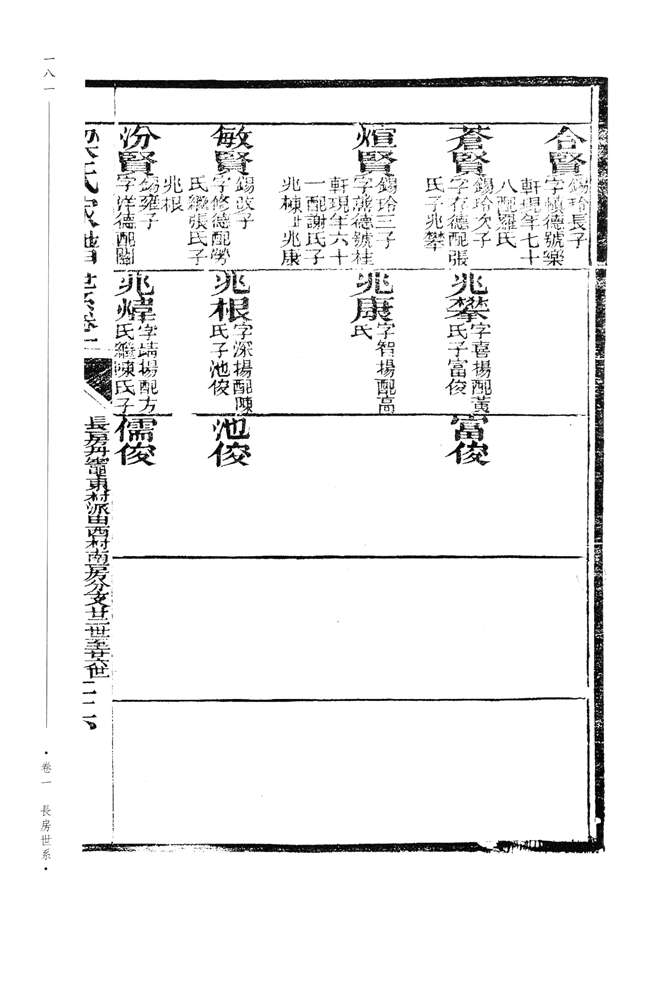 合賢
錫玲長子
字慎德號樂
軒現年七十
八配羅氏
蒼賢
錫玲次子
字存德配張
氏子兆攀
煊賢
錫玲三子
號桂
軒現年六十
一配謝氏子
兆棟 兆康
敏賢
子
字修德配勞
氏繼張氏子
兆根
汾賢
錫雍子
字洋德配關
兆攀
字喜揚配黃
氏子富俊
兆康
字智揚配高
氏
兆根
字深揚配陳
氏子池俊
兆煒
字靖揚配方
氏繼陳氏子
富俊
池俊
儒俊
氏家譜 世系卷一
長房丹竈東村派田西村南房分支廿三世至廿六世
二十六
一八一
·卷一 長房世系·